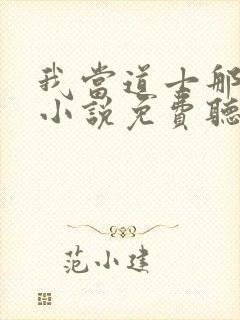 我當道士那
小說免費聽
范小建